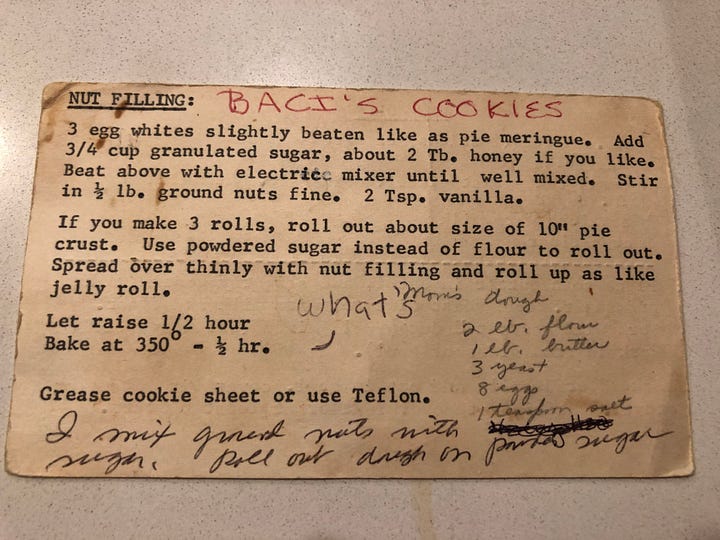 NUT FILLING: BACI'S COOKIES
3 egg whites slightly beaten like as pie meringue. Add
3/4 cup granulated sugar, about 2 Tb. honey if you like.
Beat above with electric mixer until well mixed. Stir
in ½ lb. ground nuts fine. 2 Tsp. vanilla.
If you make 3 rolls, roll out about size of 10" pie
crust. Use powdered sugar instead of flour to roll out.
Spread over thinly with nut filling and roll up as like
jelly roll.
Let raise 1/2 hour
Bake at 350° - ½ hr.
Grease cookie sheet or use Teflon.
what's
Mom's dough
2 lb. flour
1 lb. butter
3 yeast
8 eggs
1 teaspoon salt
I mix ground nuts with
sugar. Roll out dough on powder sugar